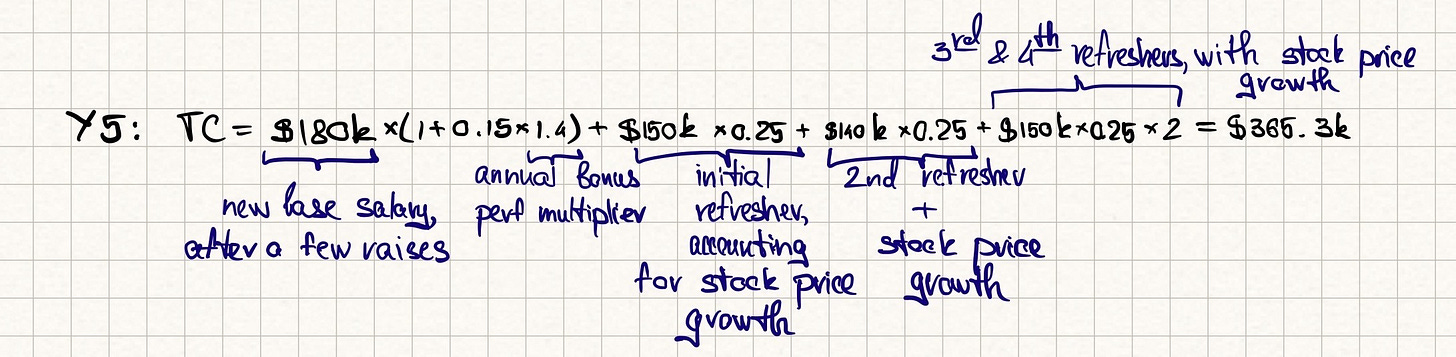 3rd & 4th refreshers, with stock price
growth
Y5: TC = $180k ×(1+0.15×1.4) + $150k ×0.25 + $140k ×0.25 + $150k×0.25 ×2 = $365.3k
new base salary,
after a few raises
annual bonus
perf multiplier
initial
refresher,
accounting
for stock price
growth
2nd refresher
+
stock price
growth